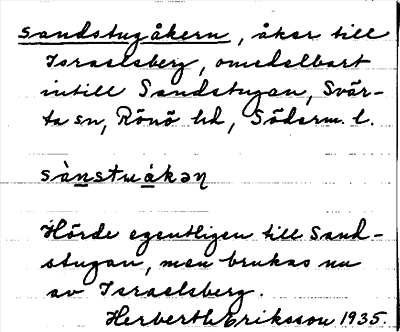 Sandstugåkern, åker till
Israelsberg, omedelbart
intill Sandstugan, Svär-
ta sn, Rönö hd, Söderm. l.
sànstuákən
Hörde egentligen till Sand-
stugan, men brukas nu
av Israelsberg.
Herbert Eriksson 1935.